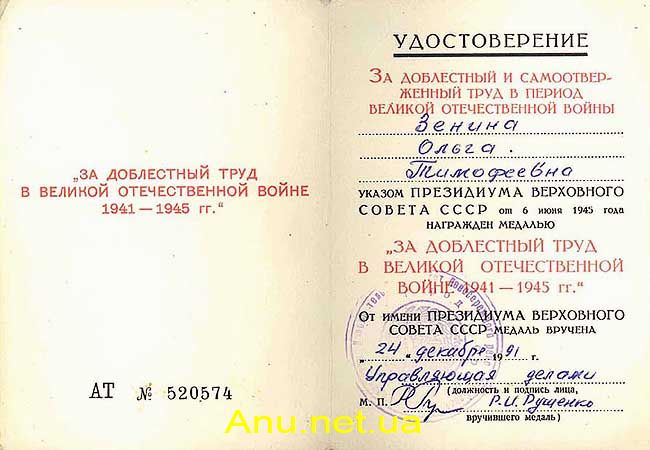 „ЗА ДОБЛЕСТНЫЙ ТРУД
В ВЕЛИКОЙ ОТЕЧЕСТВЕННОЙ ВОЙНЕ
1941 — 1945 гг.“
АТ № 520574
УДОСТОВЕРЕНИЕ
ЗА ДОБЛЕСТНЫЙ И САМООТВЕР-
ЖЕННЫЙ ТРУД В ПЕРИОД
ВЕЛИКОЙ ОТЕЧЕСТВЕННОЙ ВОЙНЫ
Зенина
Ольга
Тимофеевна
УКАЗОМ ПРЕЗИДИУМА ВЕРХОВНОГО
СОВЕТА СССР от 6 июня 1945 года
НАГРАЖДЕН МЕДАЛЬЮ
„ЗА ДОБЛЕСТНЫЙ ТРУД
В ВЕЛИКОЙ ОТЕЧЕСТВЕННОЙ
ВОЙНЕ 1941 — 1945 гг.“
От имени ПРЕЗИДИУМА ВЕРХОВНОГО
СОВЕТА СССР МЕДАЛЬ ВРУЧЕНА
„24“ декабря 1991 г.
Управляющая делами
(должность и подпись лица,
М. П. Р.И.Рущенко
вручившего медаль)
Anu.net.ua